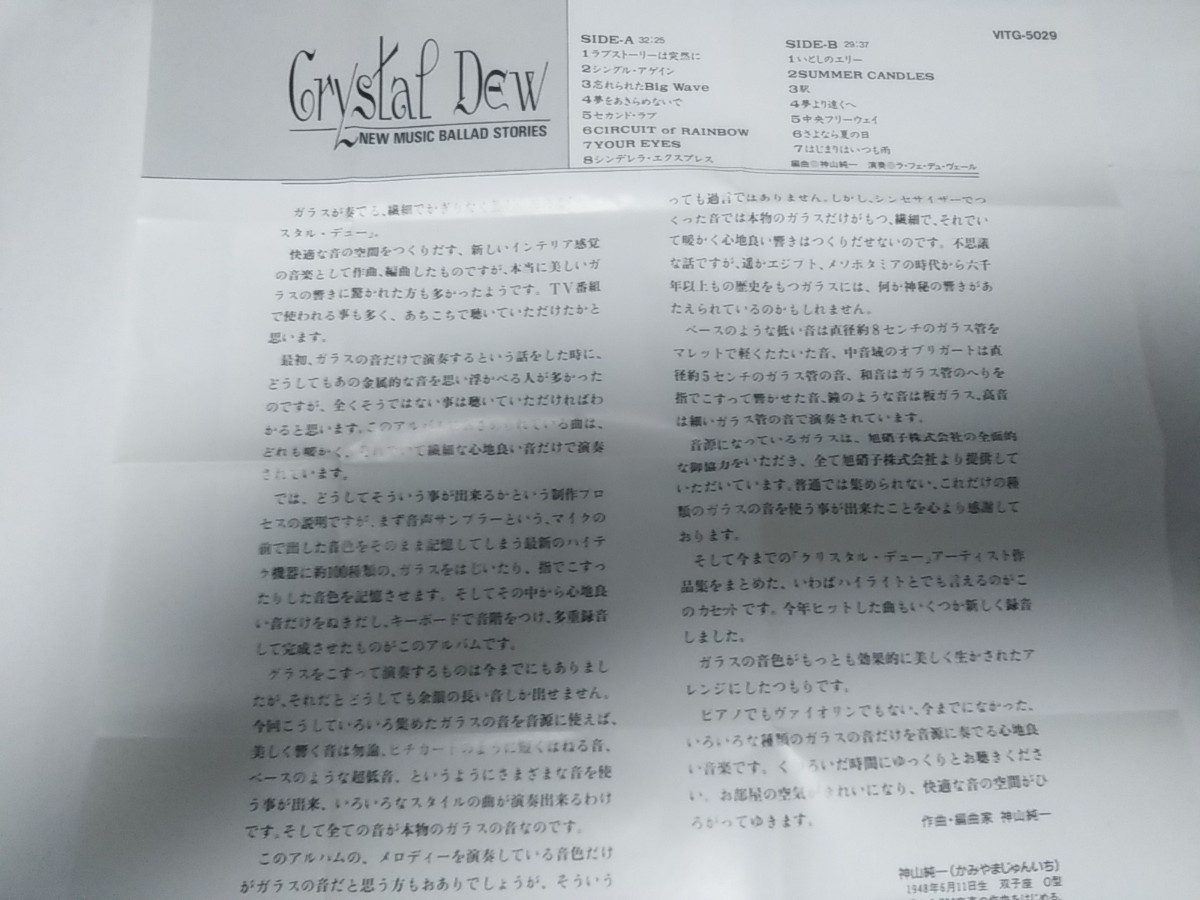 Crystal Dew
NEW MUSIC BALLAD STORIES
SIDE-A 32:25
1ラブストーリーは突然に
2シングル・アゲイン
3忘れられたBig Wave
4夢をあきらめないで
5セカンド・ラブ
6CIRCUIT of RAINBOW
7YOUR EYES
8シンデレラ・エクスプレス
SIDE-B 29:37
1いとしのエリー
2SUMMER CANDLES
3駅
4夢より遠くへ
5中央フリーウェイ
6さよなら夏の日
7はじまりはいつも雨
編曲◎神山純一 演奏◎ラ・フェ・デュ・ヴェール
VITG-5029
ガラスが奏でる、繊細でかぎりなく
スタル・デュー」。
快適な音の空間をつくりだす、新しいインテリア感覚
の音楽として作曲、編曲したものですが、本当に美しいガ
ラスの響きに驚かれた方も多かったようです。TV番組
で使われる事も多く、あちこちで聴いていただけたかと
思います。
最初、ガラスの音だけで演奏するという話をした時に、
どうしてもあの金属的な音を思い浮かべる人が多かった
のですが、全くそうではない事は聴いていただければわ
かると思います。このアルバムに いる曲は、
どれも暖かく、それでいて繊細な心地良い音だけで演奏
されています。
では、どうしてそういう事が出来るかという制作プロ
セスの説明ですが、まず音声サンプラーという、マイクの
前で出した音色をそのまま記憶してしまう最新のハイテ
ク機器に約100種類の、ガラスをはじいたり、指でこすっ
たりした音色を記憶させます。そしてその中から心地良
い音だけをぬきだし、キーボードで音階をつけ、多重録音
して完成させたものがこのアルバムです。
グラスをこすって演奏するものは今までにもありまし
たが、それだとどうしても余韻の長い音しか出せません。
今回こうしていろいろ集めたガラスの音を音源に使えば、
美しく響く音は勿論、ピチカートのように短くはねる音、
ベースのような超低音、というようにさまざまな音を使
う事が出来、いろいろなスタイルの曲が演奏出来るわけ
です。そして全ての音が本物のガラスの音なのです。
このアルバムの、メロディーを演奏している音色だけ
がガラスの音だと思う方もおありでしょうが、そういう
っても過言ではありません。しかし、シンセサイザーでつ
くった音では本物のガラスだけがもつ、繊細で、それでい
て暖かく心地良い響きはつくりだせないのです。不思議
な話ですが、遥かエジプト、メソポタミアの時代から六千
年以上もの歴史をもつガラスには、何か神秘の響きがあ
たえられているのかもしれません。
ベースのような低い音は直径約8センチのガラス管を
マレットで軽くたたいた音、中音域のオブリガートは直
径約5センチのガラス管の音、和音はガラス管のへりを
指でこすって響かせた音、鐘のような音は板ガラス、高音
は細いガラス管の音で演奏されています。
音源になっているガラスは、旭硝子株式会社の全面的
な御協力をいただき、全て旭硝子株式会社より提供して
いただいています。普通では集められない、これだけの種
類のガラスの音を使う事が出来たことを心より感謝して
おります。
そして今までの「クリスタル・デュー」アーティスト作
品集をまとめた、いわばハイライトとでも言えるのがこ
のカセットです。今年ヒットした曲もいくつか新しく録音
しました。
ガラスの音色がもっとも効果的に美しく生かされたア
レンジにしたつもりです。
ピアノでもヴァイオリンでもない、今までになかった、
いろいろな種類のガラスの音だけを音源に奏でる心地良
い音楽です。くつろいだ時間にゆっくりとお聴きくださ
い。お部屋の空気がきれいになり、快適な音の空間がひ
ろがってゆきます。
作曲・編曲家 神山純一
神山純一(かみやまじゅんいち)
1948年6月11日生 双子座 O型